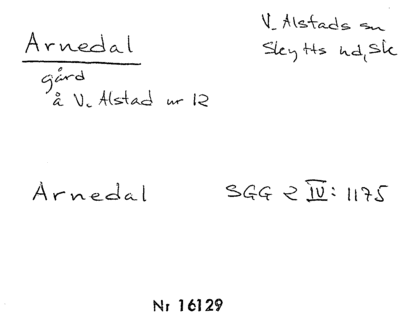 Arnedal
V. Alstads sn
Skytts hd, Sk
gård
å V. Alstad nr 12
Arnedal SGG 2 IV: 1175
Nr 16129